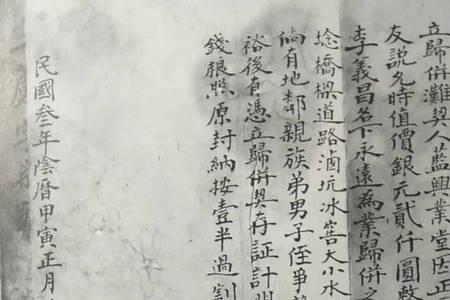 立歸併灘契人藍興業堂因正
友説允時值價銀元貳仟圓整
李義昌名下永遠為業歸併之
埝橋樑道路滷坑冰窖大小水
倘有地鄰親族弟男子侄爭
裕後有憑立歸併契存証計明
錢粮照原封納按壹半過割
民國叁年陰曆甲寅正月